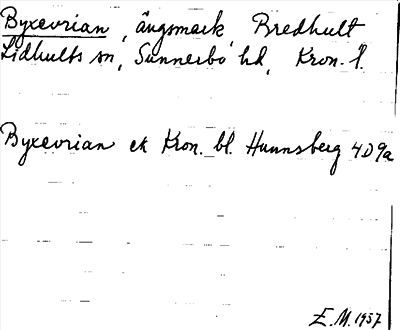 Byxevrian, ängsmark, Bredhult
Lidhults sn, Sunnerbo hd, Kron. l.
Byxevrian ek Kron. bl. Hunnsberg 4D9a
E.M. 1957